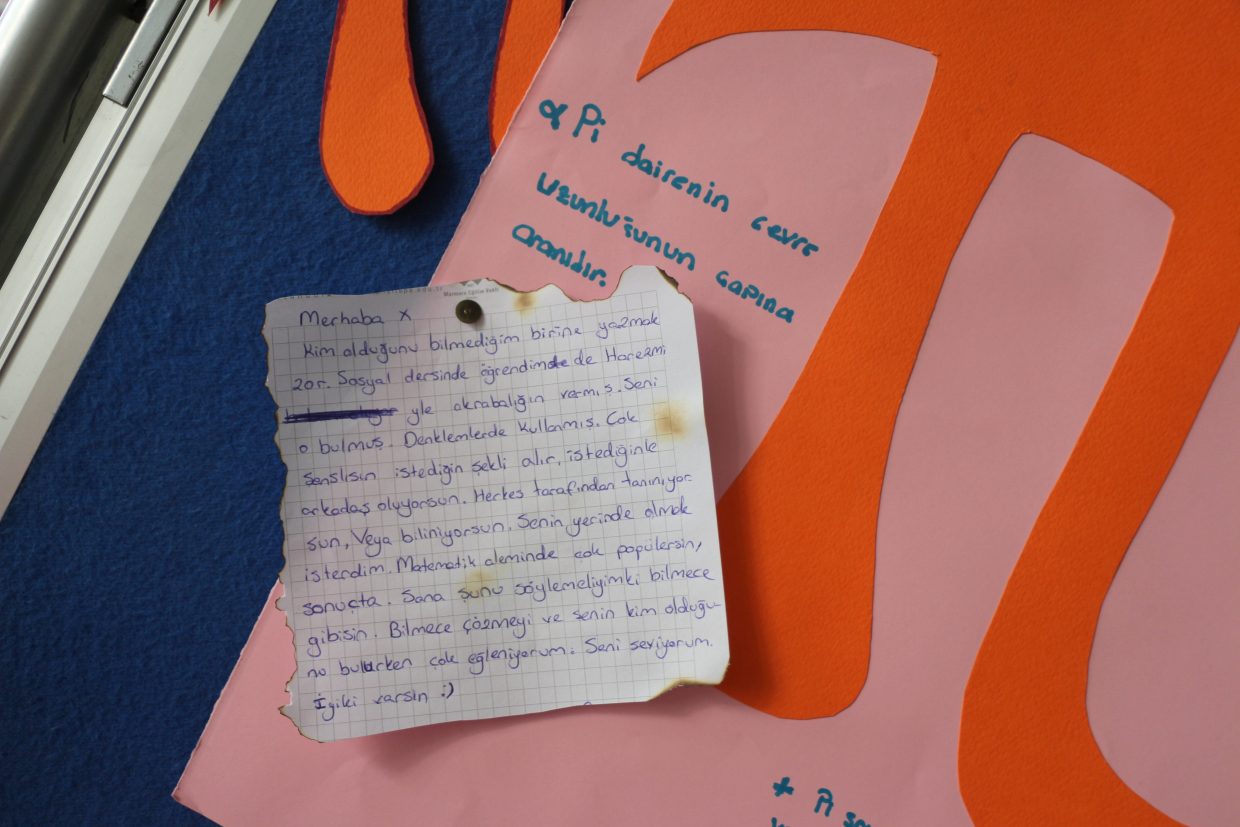 α Pi dairenin çevre
uzunluğunun çapına
oranıdır.
Marmara Eğitim Vakfı
Merhaba X
Kim olduğunu bilmediğim birine yazmak
zor. Sosyal dersinde öğrendimde de Harezmi
yle akrabalığın varmış. Seni
o bulmuş. Denklemlerde kullanmış. Çok
şanslısın istediğin şekli alır, istediğinle
arkadaş oluyorsun. Herkes tarafından tanınıyor-
sun, Veya biliniyorsun. Senin yerinde olmak
isterdim. Matematik aleminde çok popülersin,
sonuçta. Sana şunu söylemeliyimki bilmece
gibisin. Bilmece çözmeyi ve senin kim olduğu-
nu bulurken çok eğleniyorum. Seni seviyorum.
İyiki varsın :)
+ Pi